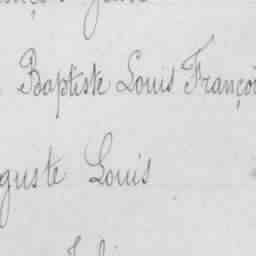 Baptiste Louis Françoi
guste Louis